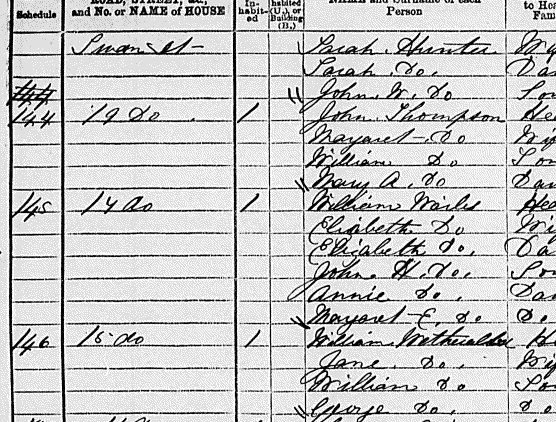 Schedule ROAD, STREET, &c., and No. or NAME of HOUSE In-habit-ed habited (U.), or Building (B.) NAME and Surname of each Person to Hea Fam
Swan St Sarah Hunter Wif
Sarah Do. Dau
John W. Do Son
144 19 Do 1 John Thompson Hea
Margaret Do Wif
William Do Son
Mary A. Do Dau
145 14 do 1 William Wailes Hea
Elizabeth Do Wi
Elizabeth do, Da
John H. Do. Son
Annie Do. Dau
Margaret E. Do Do
146 15 do 1 William H
Jane Do. Wif
William Do Son
George Do. Do